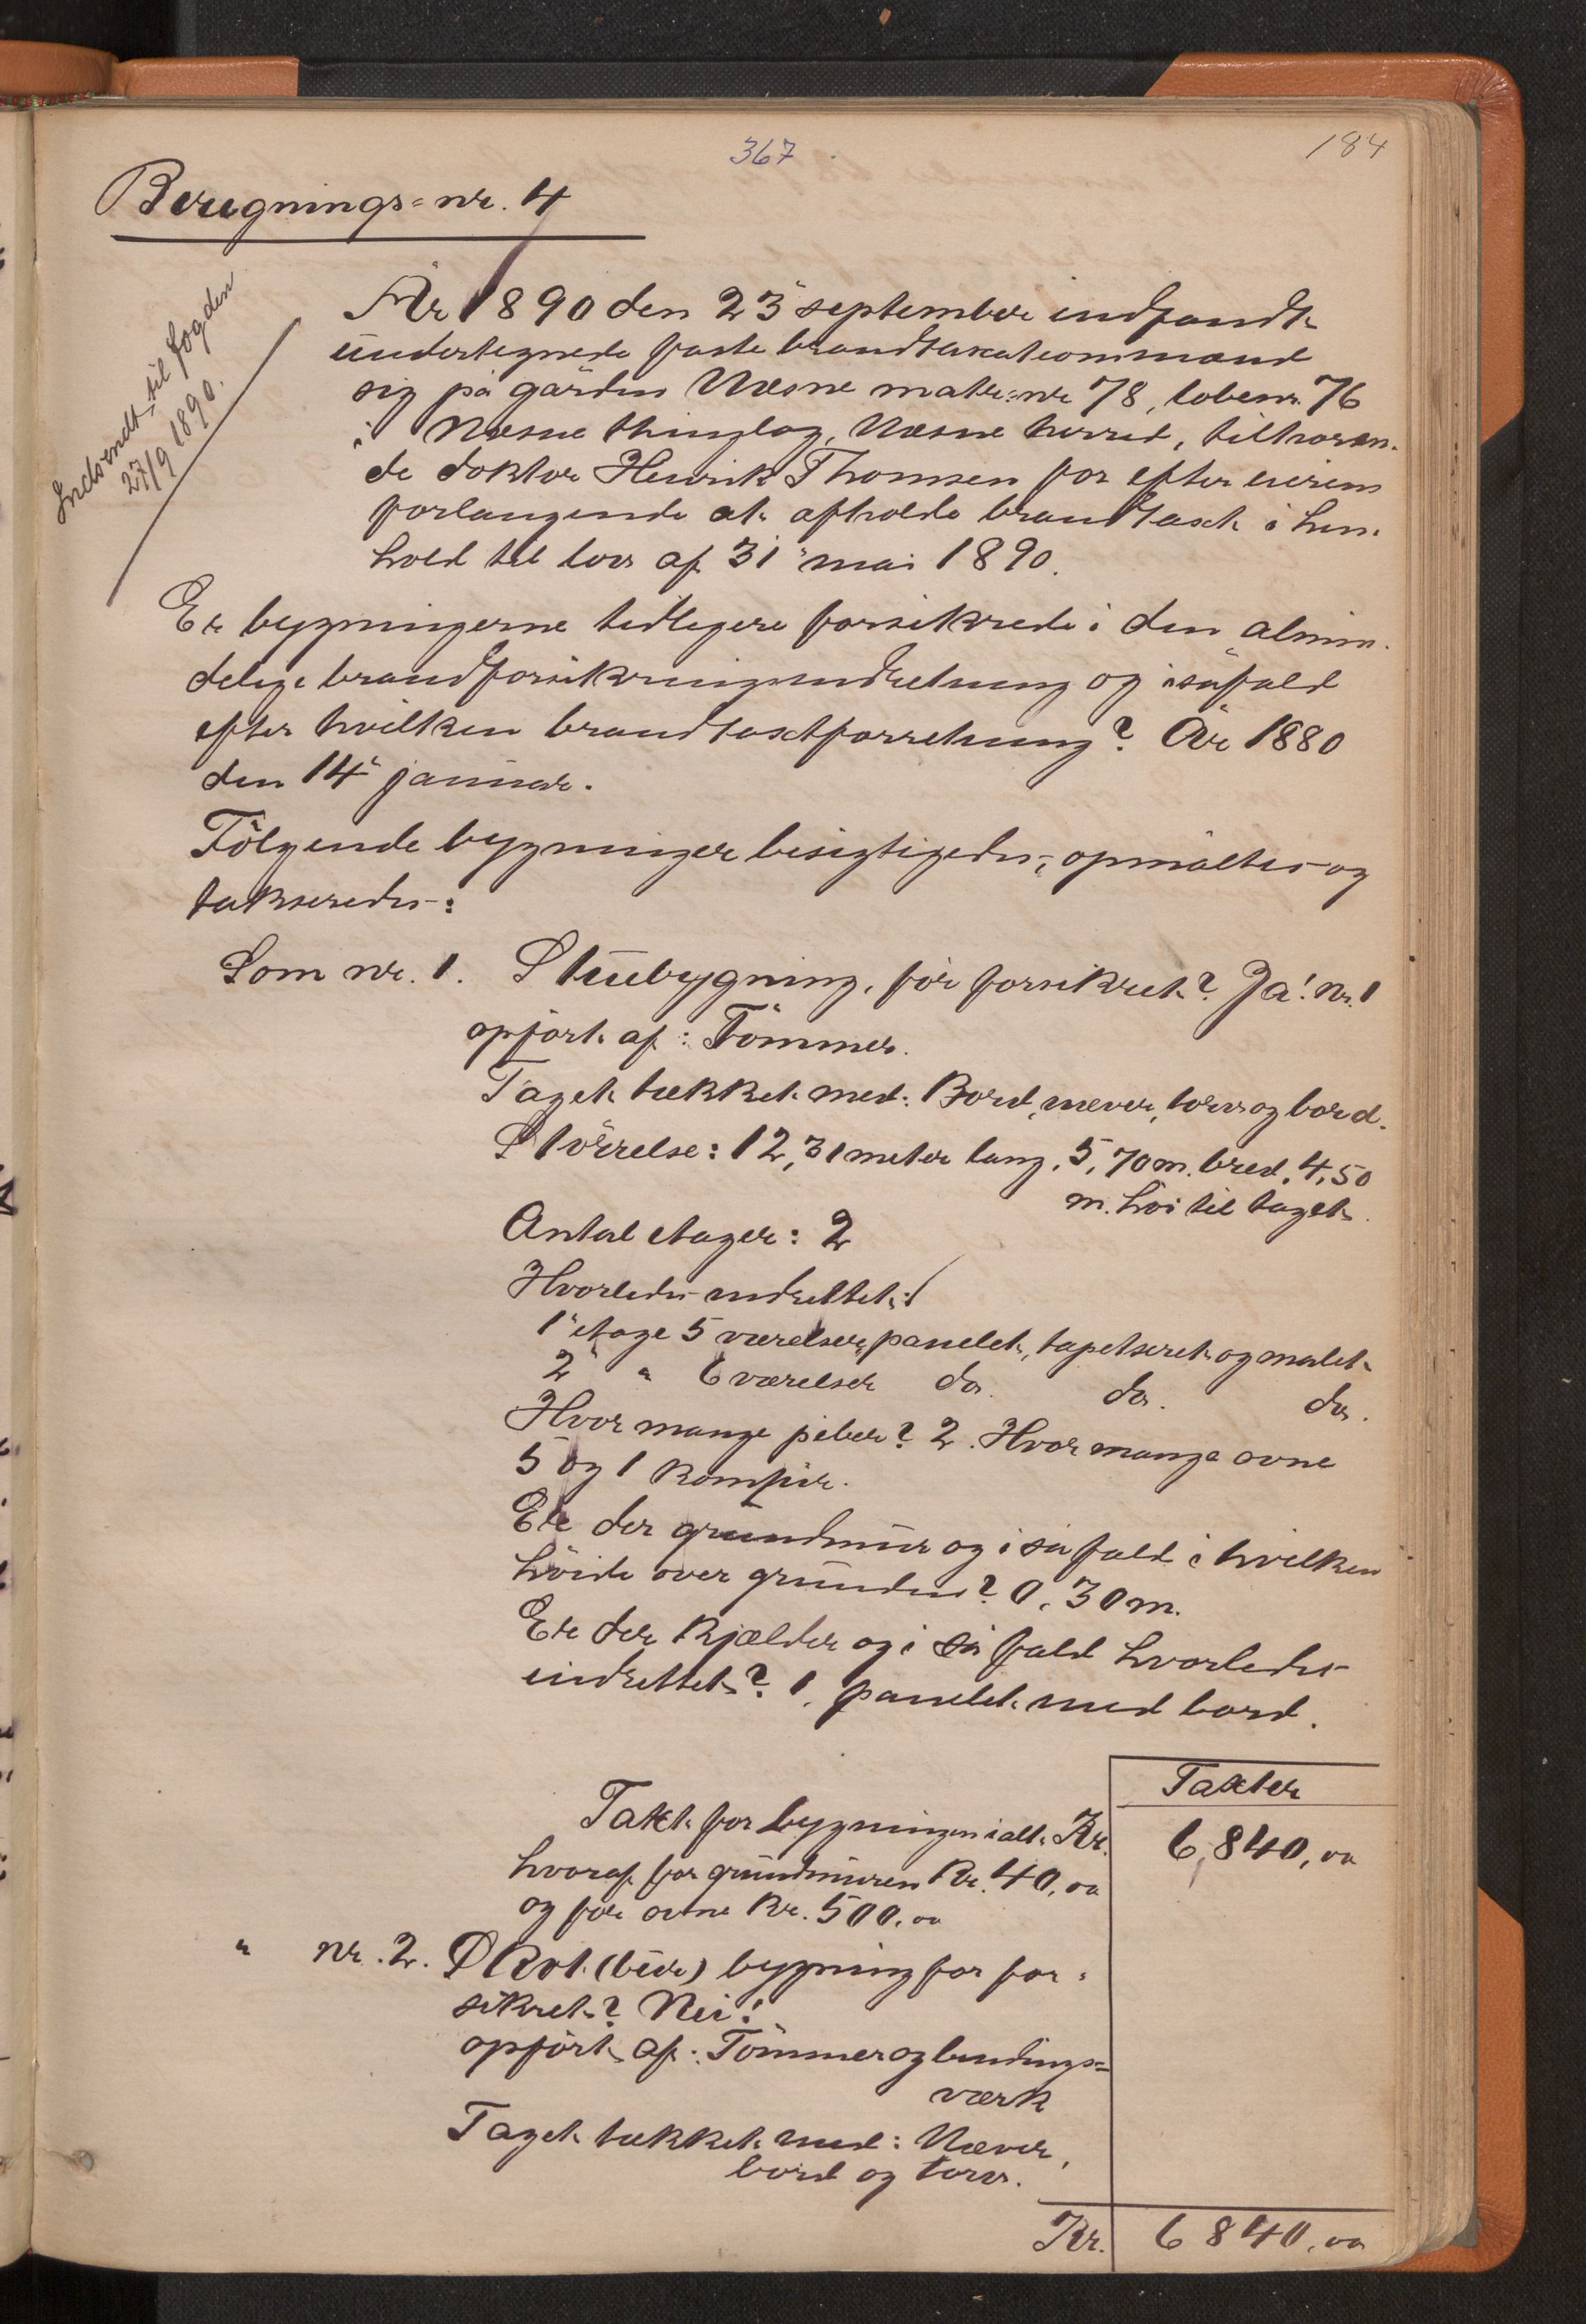 367
184
Beregnings=nr. 4
Indsendt til fogden
27/9 1890.
År 1890 den 23 september indfandt
undertegnede faste brandtaxationsmænd
sig på gården Næsne matr:nr 78, løbenr. 76
i Næsne thinglag, Næsne herred, tilhøren-
de doktor Henrik Thomsen for efter eierens
forlangende at afholde brandtaxt i hen-
hold til lov af 31 mai 1890.
Er bygningerne tidligere forsikrede i den almin-
delige brandforsikringsindretning og isåfald
efter hvilken brandtaxtforretning? År 1880
den 14 januar.
Følgende bygninger besigtigedes, opmåltes og
takseredes:
Som nr. 1. Stuebygning, før forsikret? Ja! Nr. 1
opført af: Tømmer.
Taget tækket med: Bord, næver, torv og bord.
Størrelse: 12,31 meter lang, 5,70 m. bred, 4,50
m. høi til taget.
Antal etager: 2
Hvorledes indrettet:
1 etage 5 værelser, panelet, tapetseret og malet
2 " 6 værelser do. do. do.
Hvor mange piber? 2. Hvor mange ovne
5 og 1 komfür.
Er der grundmur og i så fald i hvilken
høide over grunden? 0,30 m.
Er der kjælder og i så fald hvorledes
indrettet? 1, panelet med bord.
Taxter
Taxt for bygningen ialt Kr. 6,840,00
hvoraf for grundmuren Kr. 40,00
og for ovne Kr. 500,00
" nr. 2. (bur) bygning før for-
sikret? Nei!
opført af: Tømmer og bindings=
værk
Taget tækket med: Næver,
bord og torv.
Kr. 6840,00